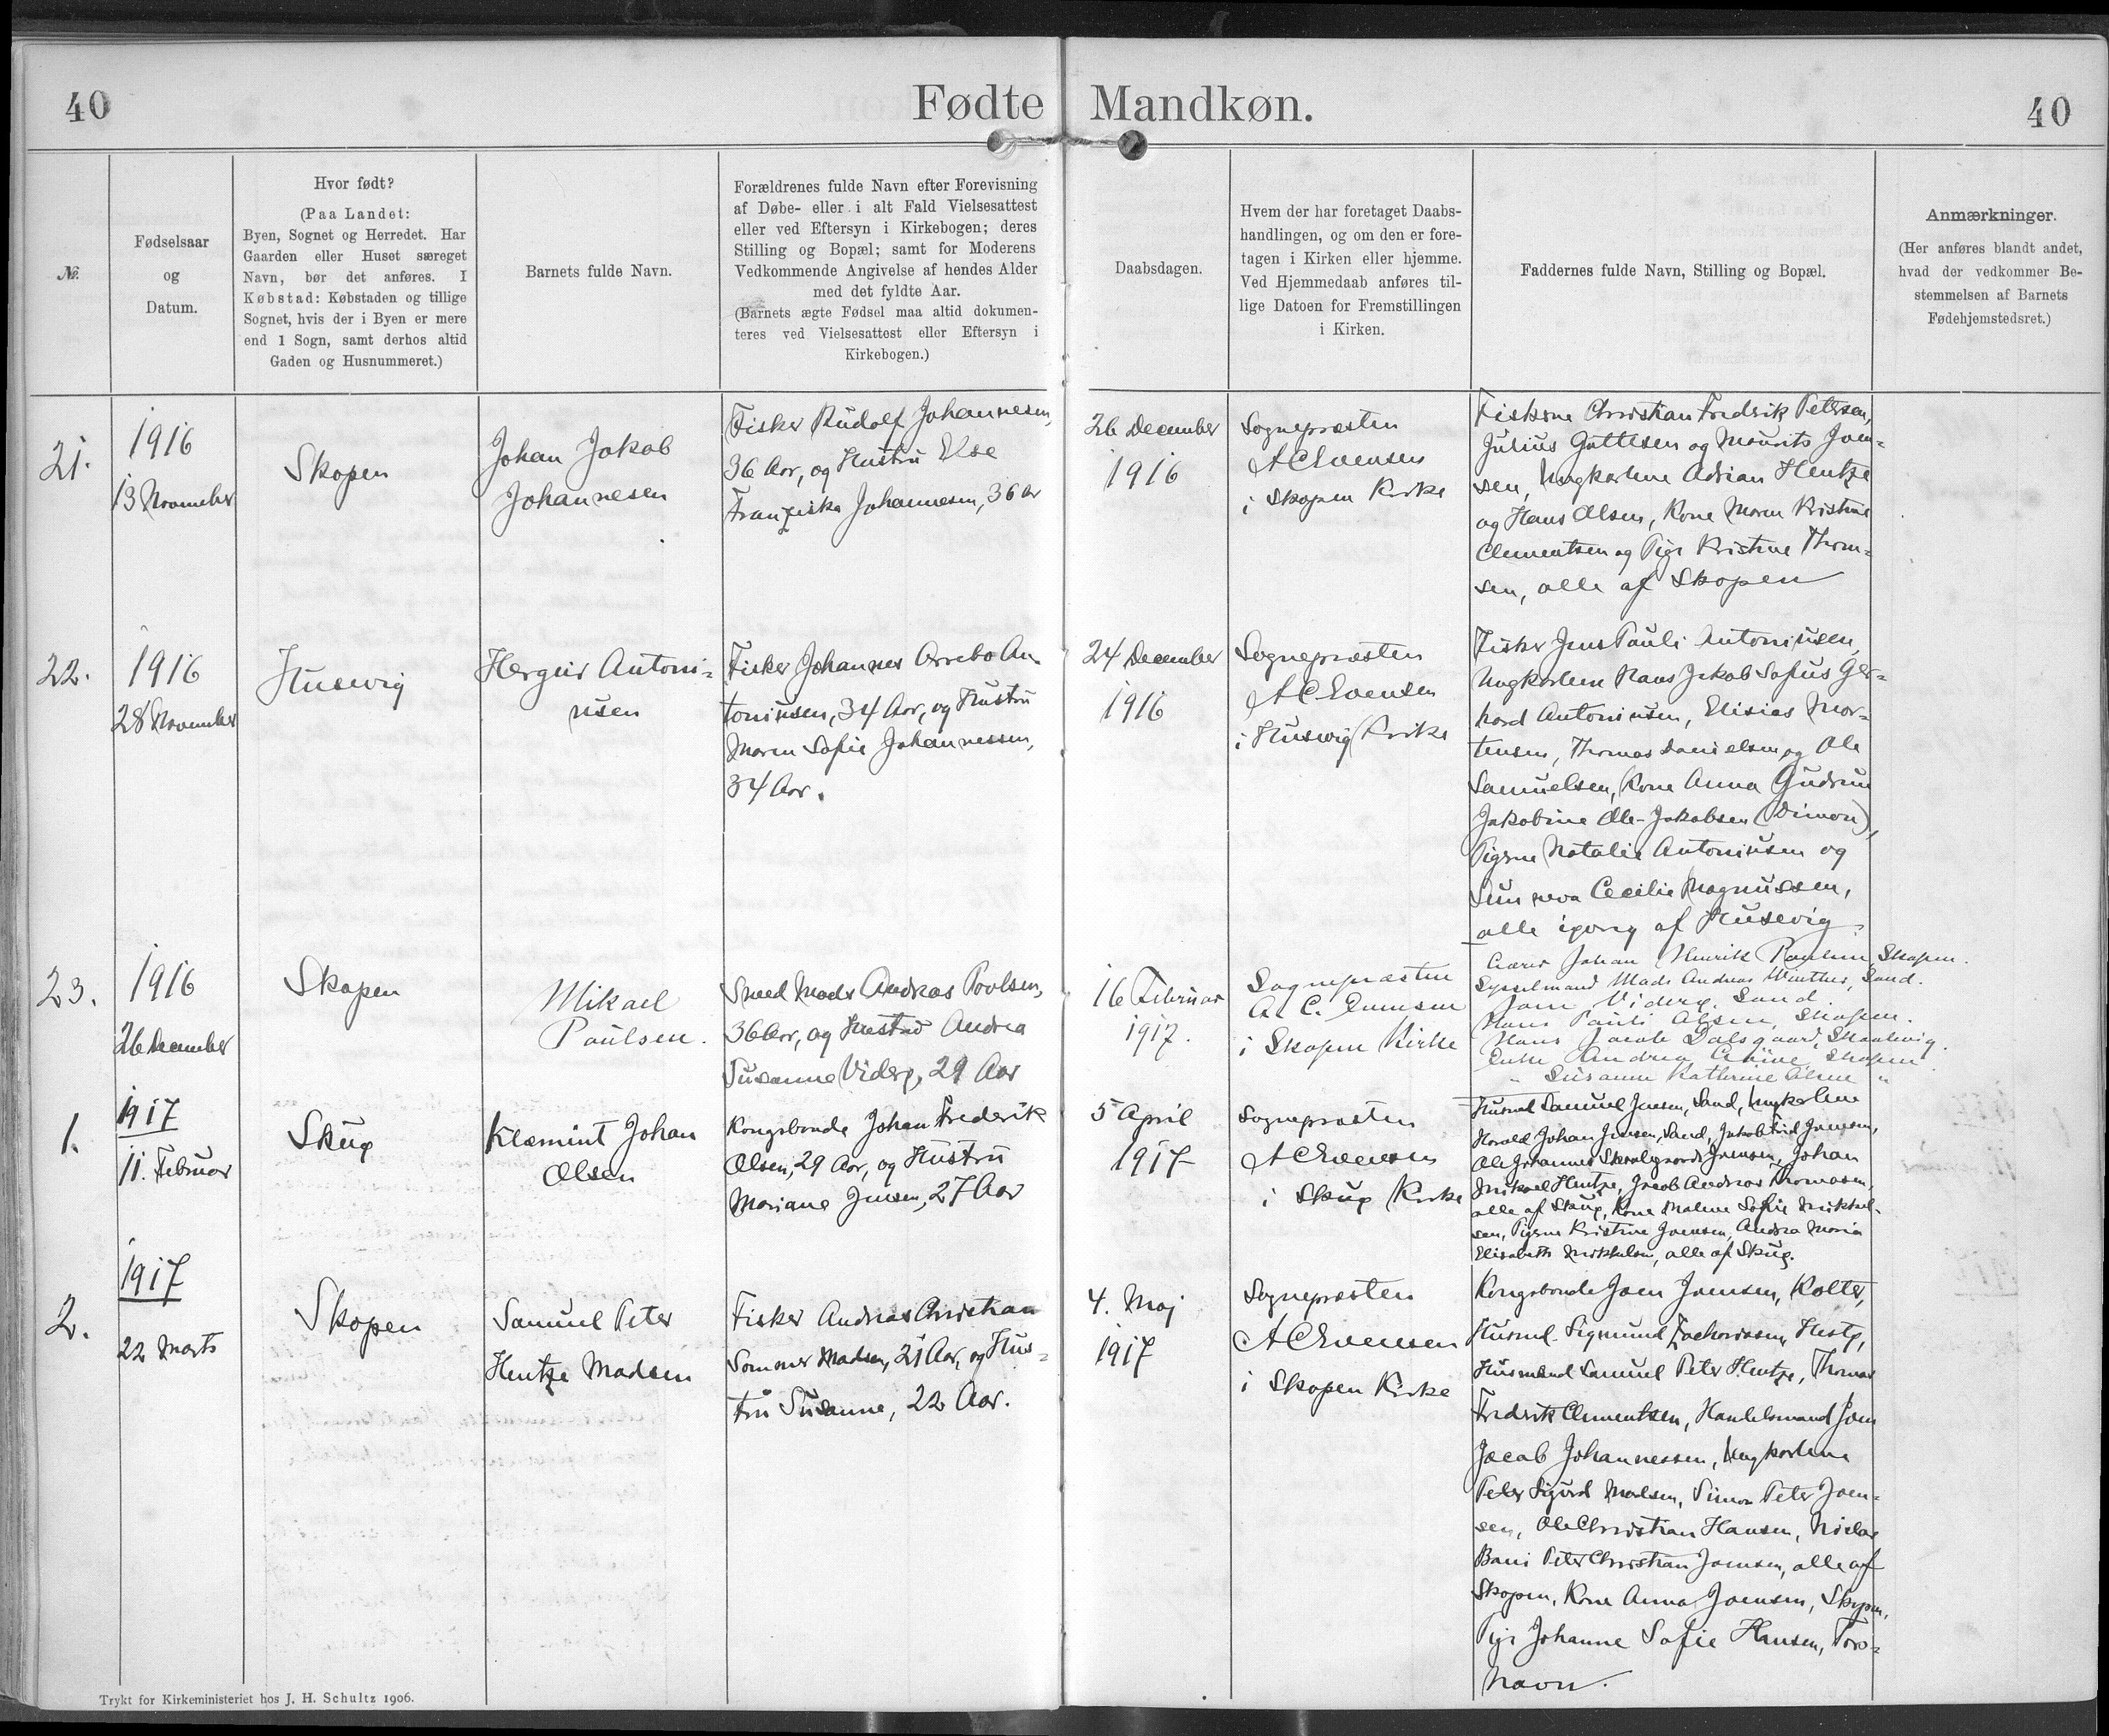 40
Fødte Mandkøn.
40
№
Fødselsaar
og
Datum.
Hvor født?
(Paa Landet:
Byen, Sognet og Herredet. Har
Gaarden eller Huset særeget
Navn, bør det anføres. I
Købstad: Købstaden og tillige
Sognet, hvis der i Byen er mere
end 1 Sogn, samt derhos altid
Gaden og Husnummeret.)
Barnets fulde Navn.
Forældrenes fulde Navn efter Forevisning
af Døbe- eller i alt Fald Vielsesattest
eller ved Eftersyn i Kirkebogen; deres
Stilling og Bopæl; samt for Moderens
Vedkommende Angivelse af hendes Alder
med det fyldte Aar.
(Barnets ægte Fødsel maa altid dokumen-
teres ved Vielsesattest eller Eftersyn i
Kirkebogen.)
Daabsdagen.
Hvem der har foretaget Daabs-
handlingen, og om den er fore-
tagen i Kirken eller hjemme.
Ved Hjemmedaab anføres til-
lige Datoen for Fremstillingen
i Kirken.
Faddernes fulde Navn, Stilling og Bopæl.
Anmærkninger.
(Her anføres blandt andet,
hvad der vedkommer Be-
stemmelsen af Barnets
Fødehjemstedsret.)
21.
1916
13 November
Skopen
Johan Jakob
Johannesen
Fisker Rudolf Johannesen,
36 Aar, og Hustru Else
Franziska Johannesen, 36 Aar
26 December
1916
Sognepræsten
A C Evensen
i Skopen Kirke
Fiskerne Christian Fredrik Petersen,
Julius Guttesen og Mourits Joen-
sen, Ungkarlene Adrian Hentze
og Hans Olsen, Kone Maren Kristine
Clementsen og Pige Kristine Thom-
sen, alle af Skopen
22.
1916
28 November
Husevig
Hergeir Antoni-
usen
Fisker Johannes Arrebo An-
toniusen, 34 Aar, og Hustru
Maren Sofie Johannessen,
34 Aar.
24 December
1916
Sognepræsten
A C Evensen
i Husevig Kirke
Fisker Jens Pauli Antoniusen,
Ungkarlene Hans Jakob Sofus Ger-
hard Antoniusen, Elisias Mor-
tensen, Thomas Danielsen og Ole
Samuelsen, Kone Anna Gudrun
Jakobine Ole-Jakobsen (Dimon),
Pigerne Natalie Antoniusen og
Sunneva Cecilie Magnussen,
alle iøvrig af Husevig.
23.
1916
26 December
Skopen
Mikael
Paulsen.
Smed Mads Andreas Poulsen,
36 Aar, og Hustru Andrea
Susanne Viderø, 29 Aar
16 Februar
1917.
Sognepræsten
A. C. Evensen
i Skopen Kirke
Johan Henrik Poulsen, Skopen.
Sysselmand Mads Andreas Winther, Sand.
Joen Viderø, Sand.
Hans Pauli Olsen, Skopen.
Hans Jacob Dalsgaard, Skaalevig.
Enke Andrea Skopen
" Susanne Kathrine Olsen "
1.
1917
11. Februar
Skuø
Klæmint Johan
Olsen
Kongsbonde Johan Frederik
Olsen, 29 Aar, og Hustru
Mariane Jensen, 27 Aar
5 April
1917
Sognepræsten
A C Evensen
i Skuø Kirke
Husmd Samuel Jensen, Sand, Ungkarlene
Harald Johan Jensen, Sand, Jakob Joensen,
Ole Johannes Joensen, Johan
Mikael Hentze, Jacob Andreas Thomasen,
alle af Skuø, Kone Malene Sofie Mikkel-
sen, Pigerne Kristine Joensen, Andrea Maria
Elisabeth Mikkelsen, alle af Skuø.
2.
1917
22 Marts
Skopen
Samuel Peter
Hentze Madsen
Fisker Andreas Christian
Sommer Madsen, 21 Aar, og Hus-
tru Susanne, 22 Aar.
4. Maj
1917
Sognepræsten
A C Evensen
i Skopen Kirke
Kongsbonde Joen Joensen, Kolter,
Husmd. Sigmund Zachariasen, Hestø,
Husmænd Samuel Peter Hentze, Thomas
Fredrik Clementsen, Handelsmand Joen
Jacob Johannessen, Ungkarlene
Peter Sigurd Madsen, Simon Peter Joen-
sen, Ole Christian Hansen, Niclas
Peter Christian Joensen, alle af
Skopen, Kone Anna Joensen, Skopen,
Pige Johanne Sofie Hansen, Tors-
havn.
Trykt for Kirkeministeriet hos J. H. Schultz 1906.